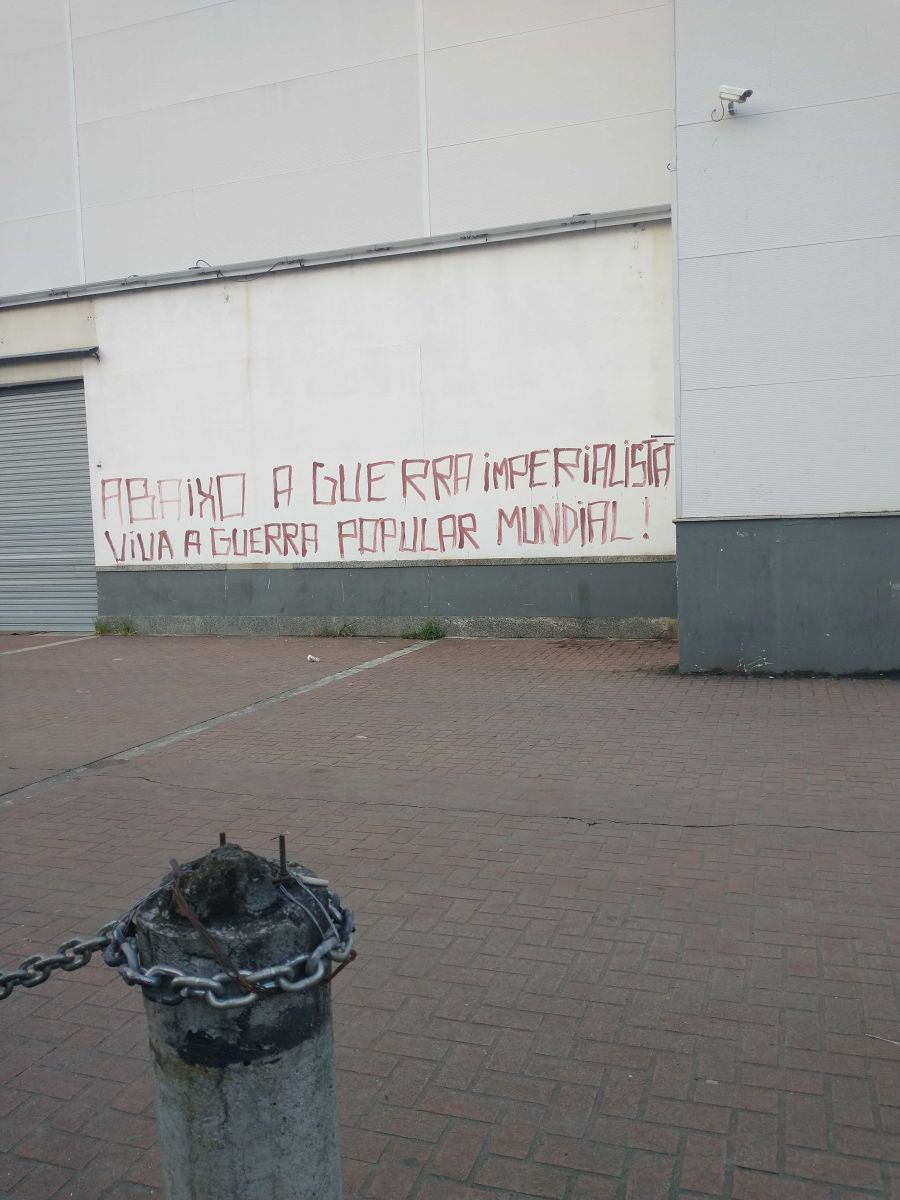 ABAiXO A GUERRA iMPERiALiSTA
ViVA A GUERRA POPULAR MUNDiAL!